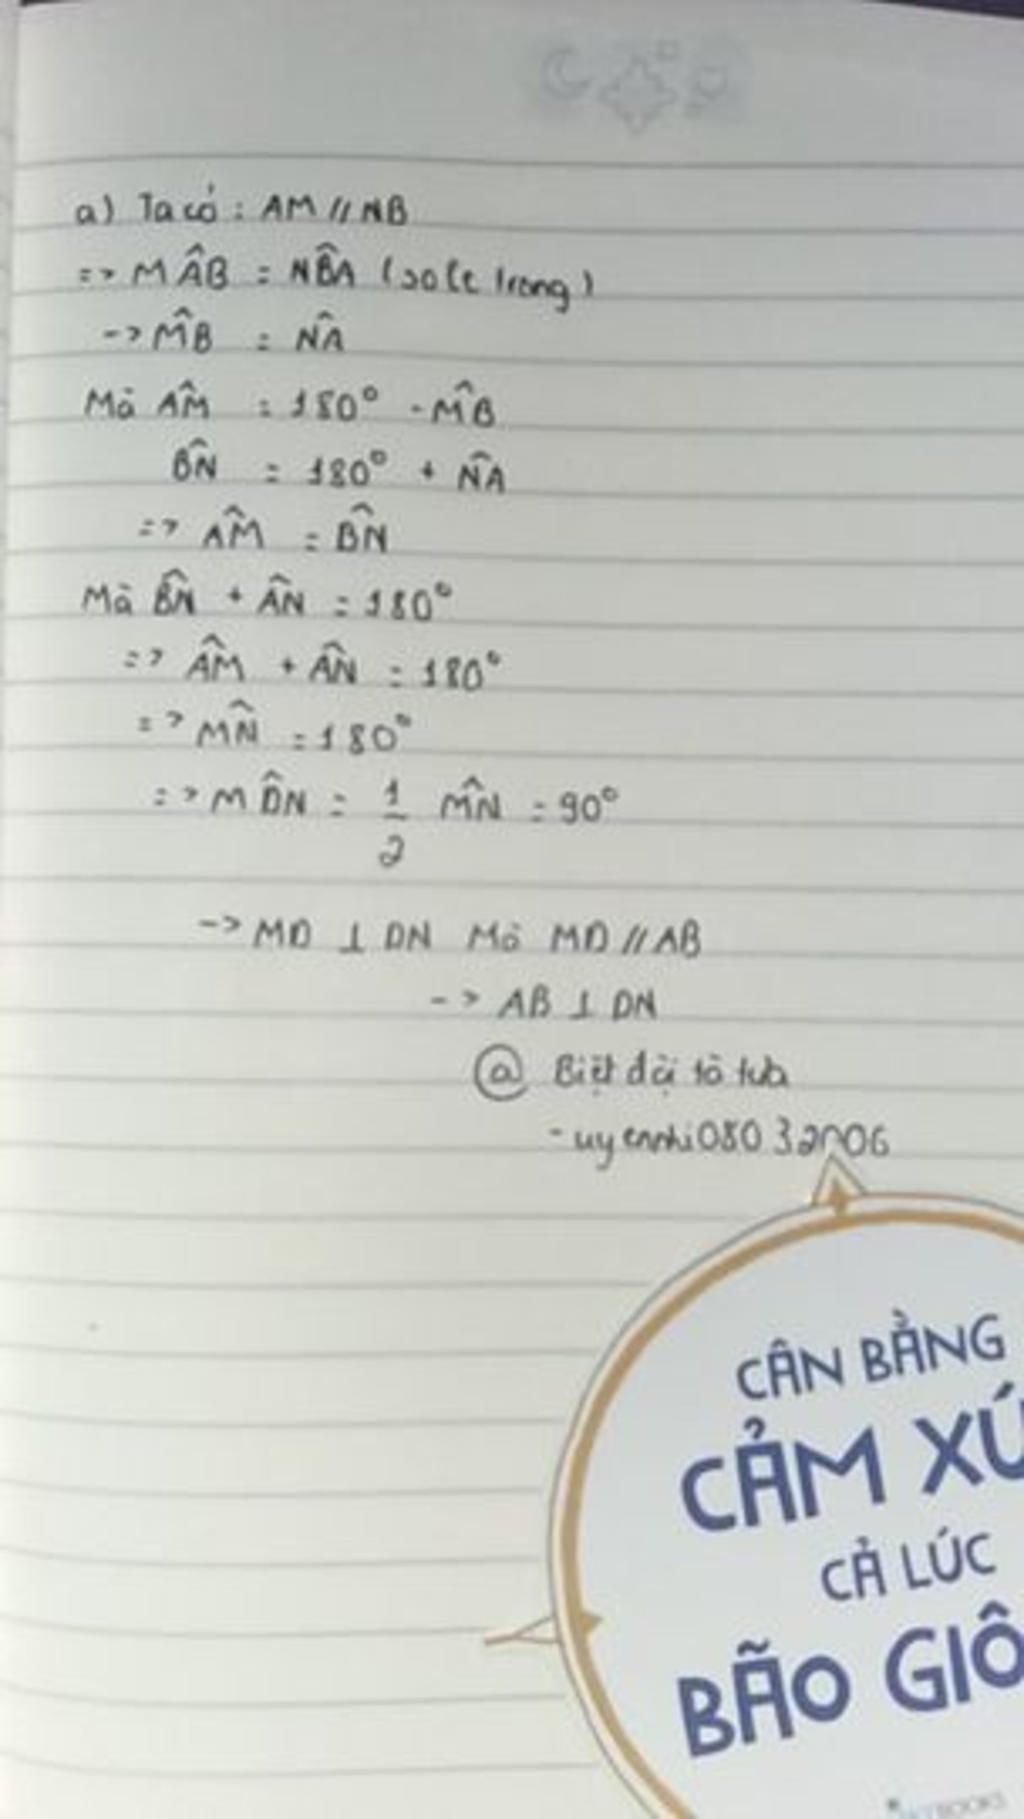 a) Ta có : AM // NB
=> MÂB = NB̂A (so le trong)
-> M̂B = N̂A
Mà AM̂ = 180° - M̂B
B̂N = 180° + N̂A
=> AM̂ = BN̂
Mà BN̂ + ÂN = 180°
=> ÂM + ÂN = 180°
=> MN̂ = 180°
=> MD̂N = 1/2 MN̂ = 90°
-> MD ⊥ DN Mà MD // AB
-> AB ⊥ DN
@ Biệt đội
- uyennhi08032006
CÂN BẰNG
CẢM XÚ
CẢ LÚC
BÃO GIÔ